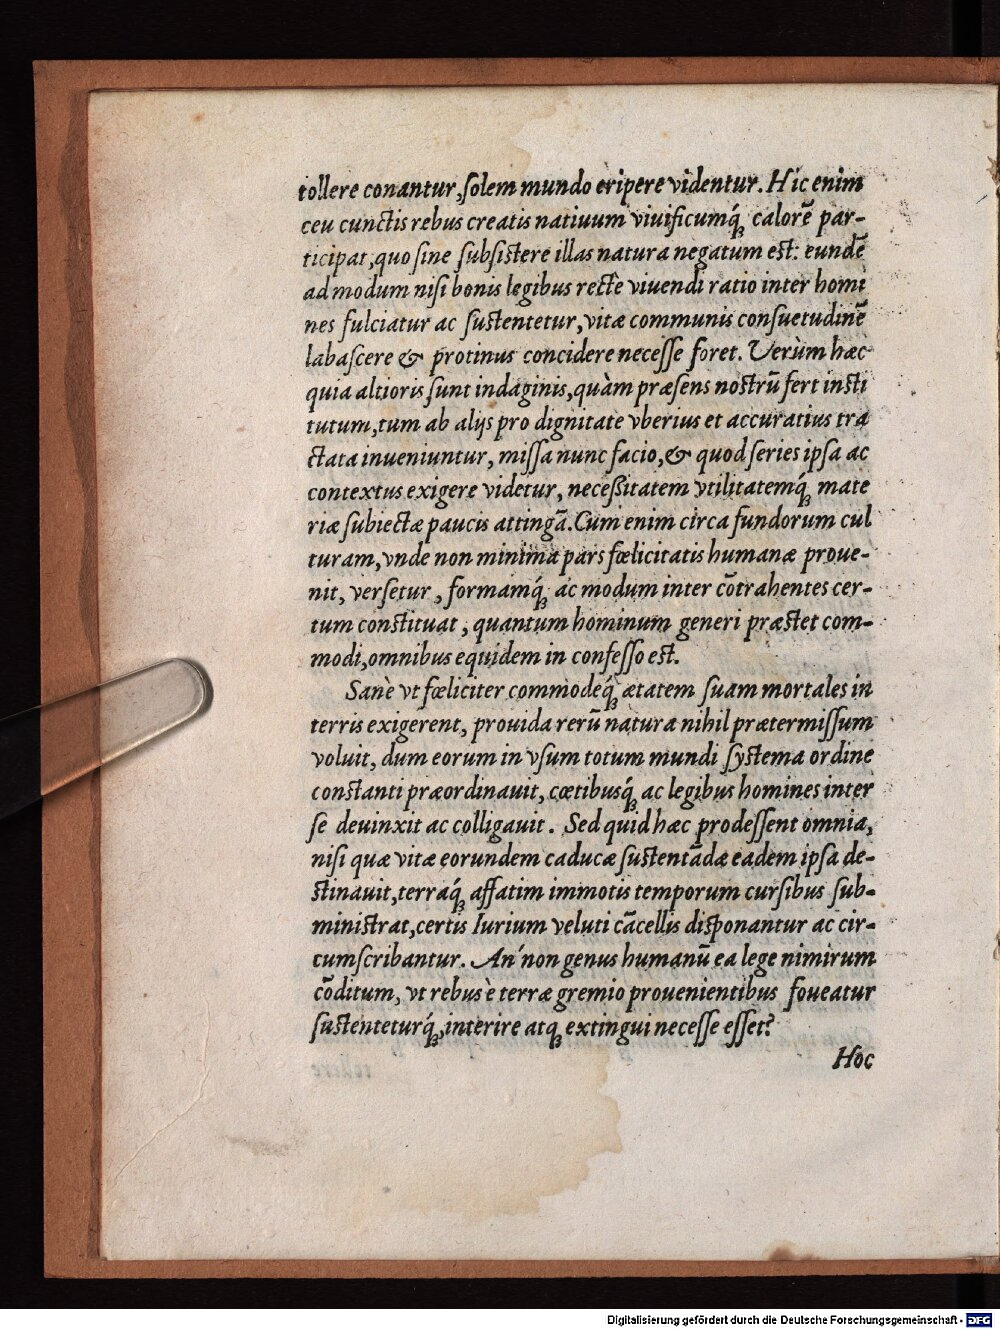 tollere conantur, ſolem mundo eripere videntur. Hic enim
ceu cunctis rebus creatis natiuum viuificumq́ꝫ calorē par-
ticipat, quo ſine ſubſiſtere illas natura negatum eſt: eundē
ad modum niſi bonis legibus rectè viuendi ratio inter homi
nes fulciatur ac ſuſtentetur, vitæ communis conſuetudinē
labaſcere & protinus concidere neceſſe foret. Verùm hæc
quia altioris ſunt indaginis, quàm præſens noſtrū fert inſti
tutum, tum ab alijs pro dignitate vberius et accuratius tra
ctata inueniuntur, miſſa nunc facio, & quod ſeries ipſa ac
contextus exigere videtur, neceßitatem vtilitatemq́ꝫ mate
riæ ſubiectæ paucis attingā. Cùm enim circa fundorum cul
turam, vnde non minima pars fœlicitatis humanæ proue-
nit, verſetur, formamq́ꝫ ac modum inter cōtrahentes cer-
tum conſtituat, quantum hominum generi præſtet com-
modi, omnibus equidem in confeſſo eſt.
Sanè vt fœliciter commodeq́ꝫ ætatem ſuam mortales in
terris exigerent, prouida rerū natura nihil prætermiſſum
voluit, dum eorum in vſum totum mundi ſyſtema ordine
conſtanti præordinauit, cœtibusq́ꝫ ac legibus homines inter
ſe deuinxit ac colligauit. Sed quid hæc prodeſſent omnia,
niſi quæ vitæ eorundem caducæ ſuſtentādæ eadem ipſa de-
ſtinauit, terraq́ꝫ affatim immotis temporum curſibus ſub-
miniſtrat, certis Iurium veluti cācellis diſponantur ac cir-
cumſcribantur. An' non genus humanū ea lege nimirum
cōditum, vt rebus è terræ gremio prouenientibus foueatur
ſuſtenteturq́ꝫ, interire atqꝫ extingui neceſſe eſſet?
Hoc
Digitalisierung gefördert durch die Deutsche Forschungsgemeinschaft - DFG